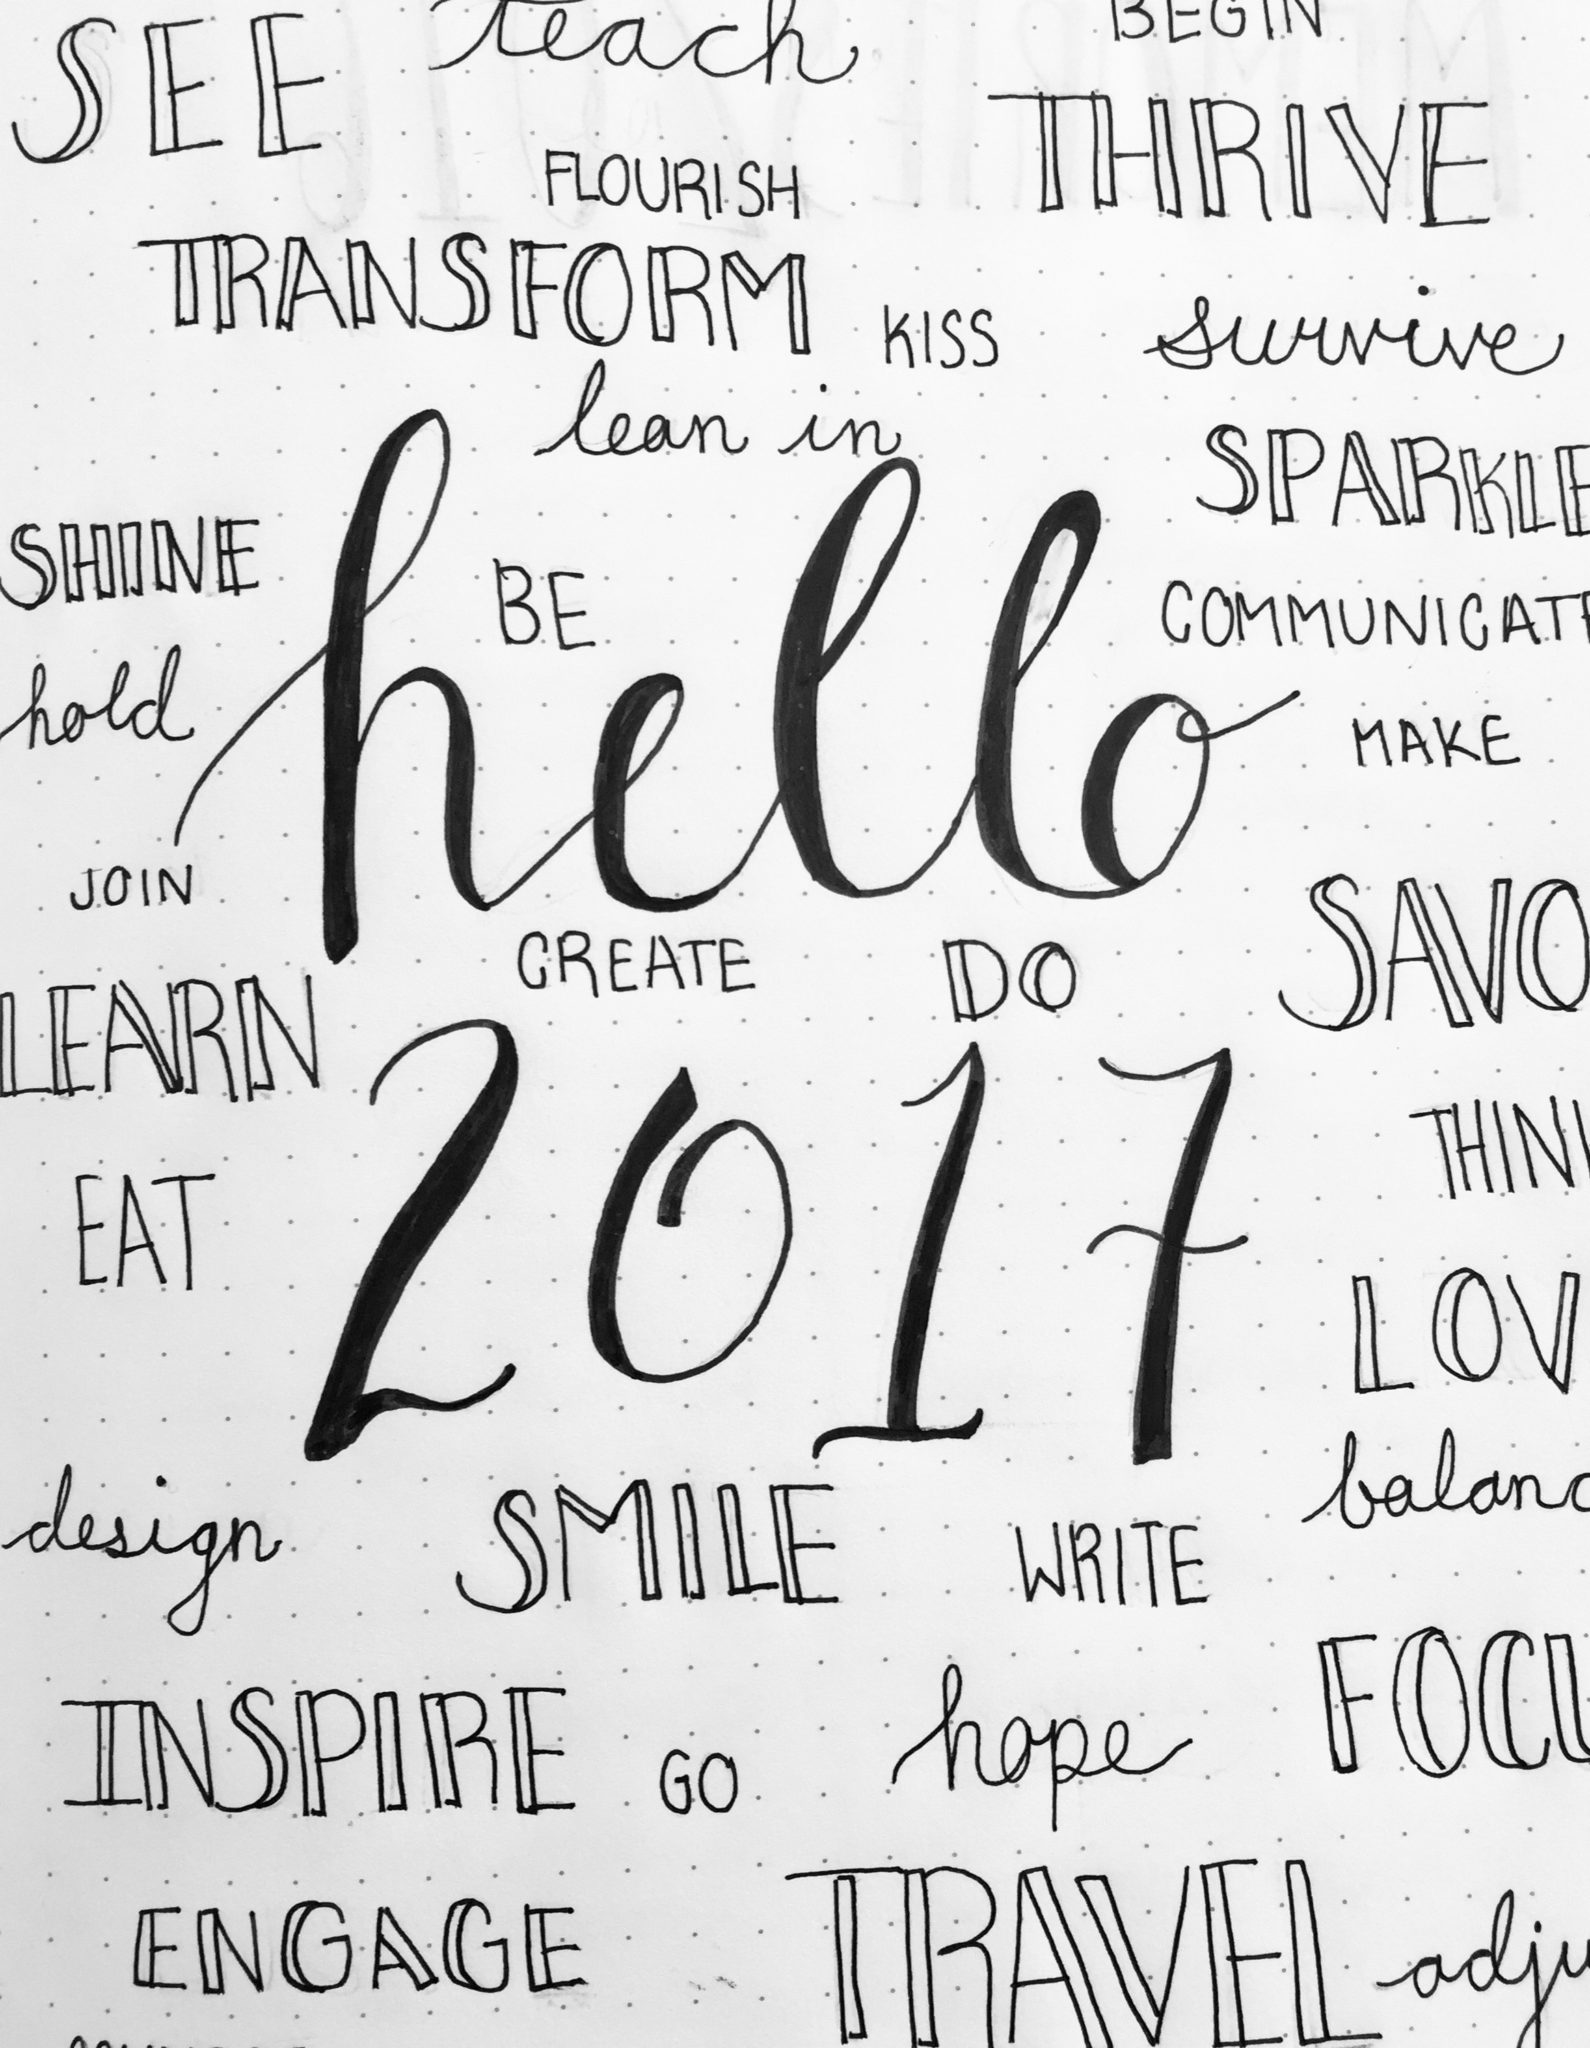 SEE teach BEGIN
THRIVE
FLOURISH
TRANSFORM
KISS survive
lean in
SPARKLE
SHINE
hello
BE
COMMUNICATE
hold
MAKE
JOIN
CREATE DO SAVO
LEARN
2017
THIN
EAT
LOV
balanc
design SMILE WRITE
FOCU
INSPIRE GO hope
TRAVEL
ENGAGE
adju